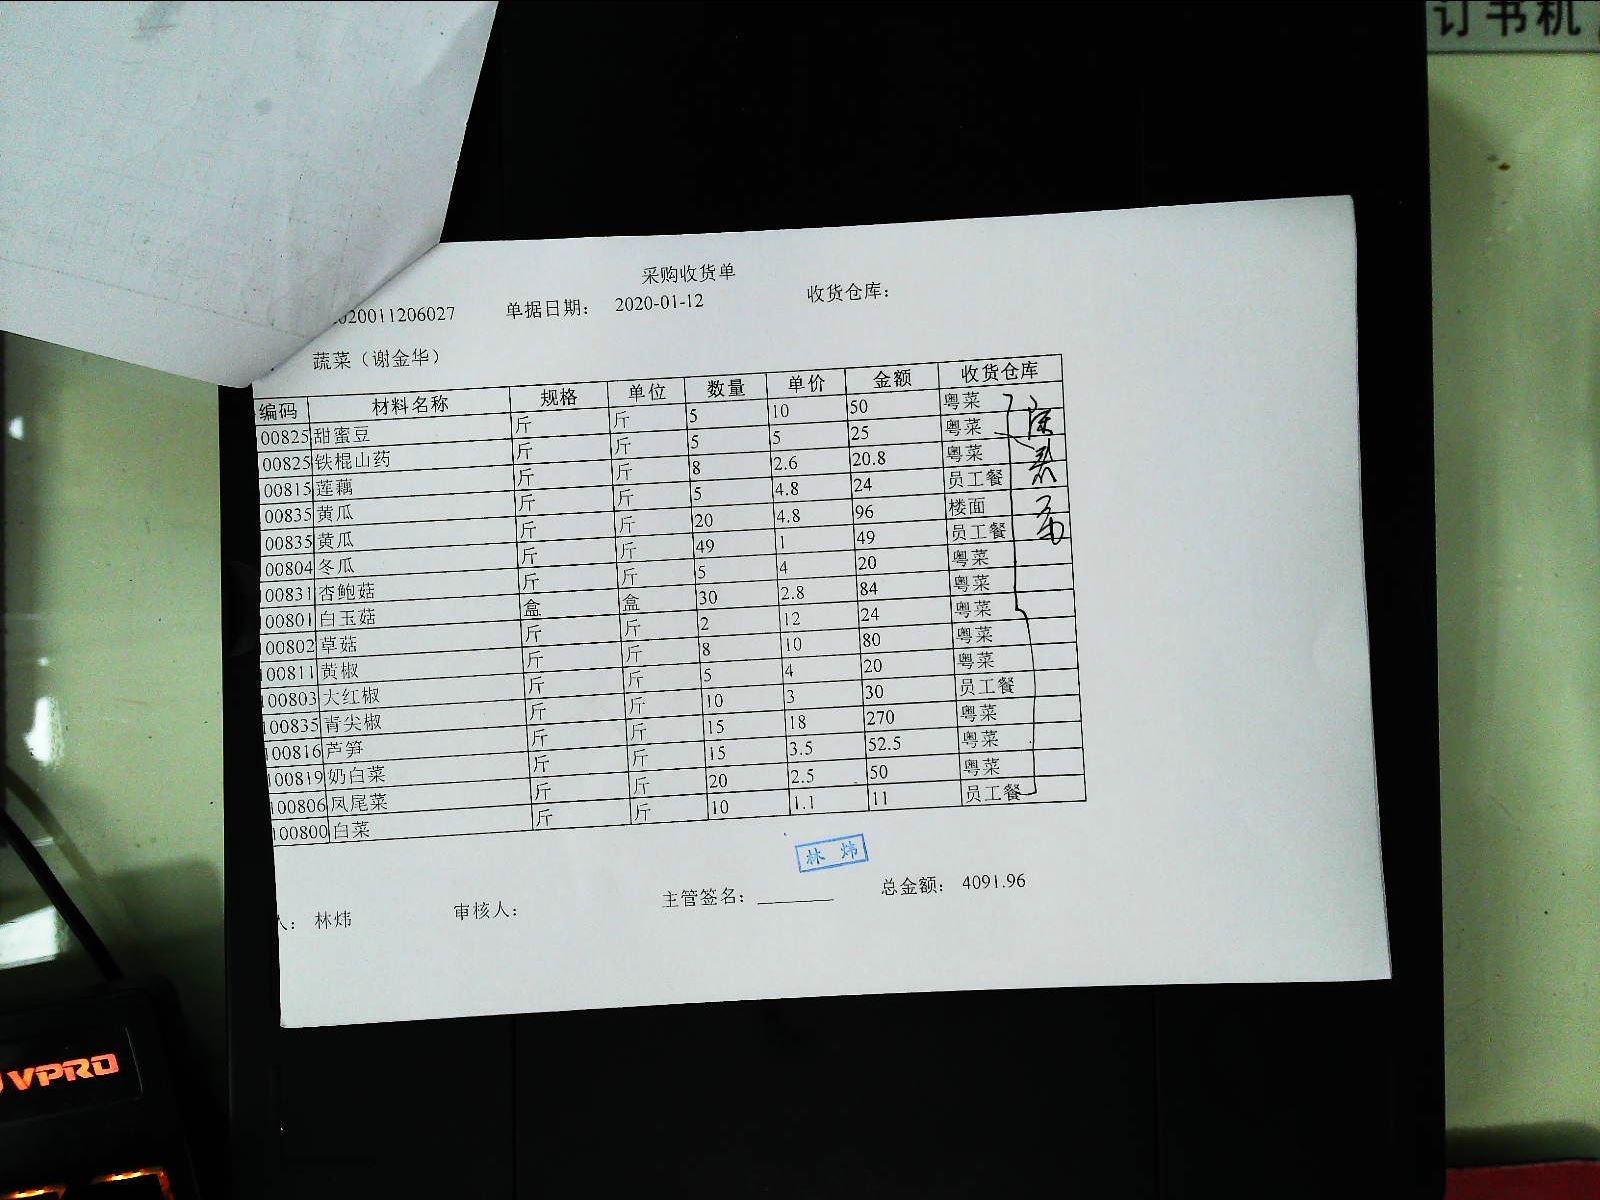 订书机
采购收货单
2020011206027 单据日期： 2020-01-12 收货仓库：
蔬菜（谢金华）
编码 材料名称 规格 单位 数量 单价 金额 收货仓库
00825 甜蜜豆 斤 斤 5 10 50 粤菜
00825 铁棍山药 斤 斤 5 5 25 粤菜
00815 莲藕 斤 斤 8 2.6 20.8 粤菜
00835 黄瓜 斤 斤 5 4.8 24 员工餐
00835 黄瓜 斤 斤 20 4.8 96 楼面
00804 冬瓜 斤 斤 49 1 49 员工餐
00831 杏鲍菇 斤 斤 5 4 20 粤菜
00801 白玉菇 盒 盒 30 2.8 84 粤菜
00802 草菇 斤 斤 2 12 24 粤菜
00811 黄椒 斤 斤 8 10 80 粤菜
100803 大红椒 斤 斤 5 4 20 粤菜
100835 青尖椒 斤 斤 10 3 30 员工餐
100816 芦笋 斤 斤 15 18 270 粤菜
100819 奶白菜 斤 斤 15 3.5 52.5 粤菜
100806 凤尾菜 斤 斤 20 2.5 50 粤菜
100800 白菜 斤 斤 10 1.1 11 员工餐
林炜
人： 林炜 审核人： 主管签名： 总金额： 4091.96
VPRO